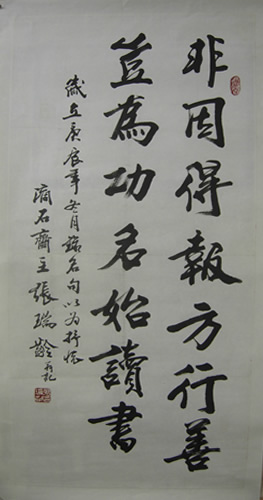 非因得報方行善
豈為功名始讀書
歲在庚辰年冬月錄名句以為抒懷
滴石齋主張瑞齡並記